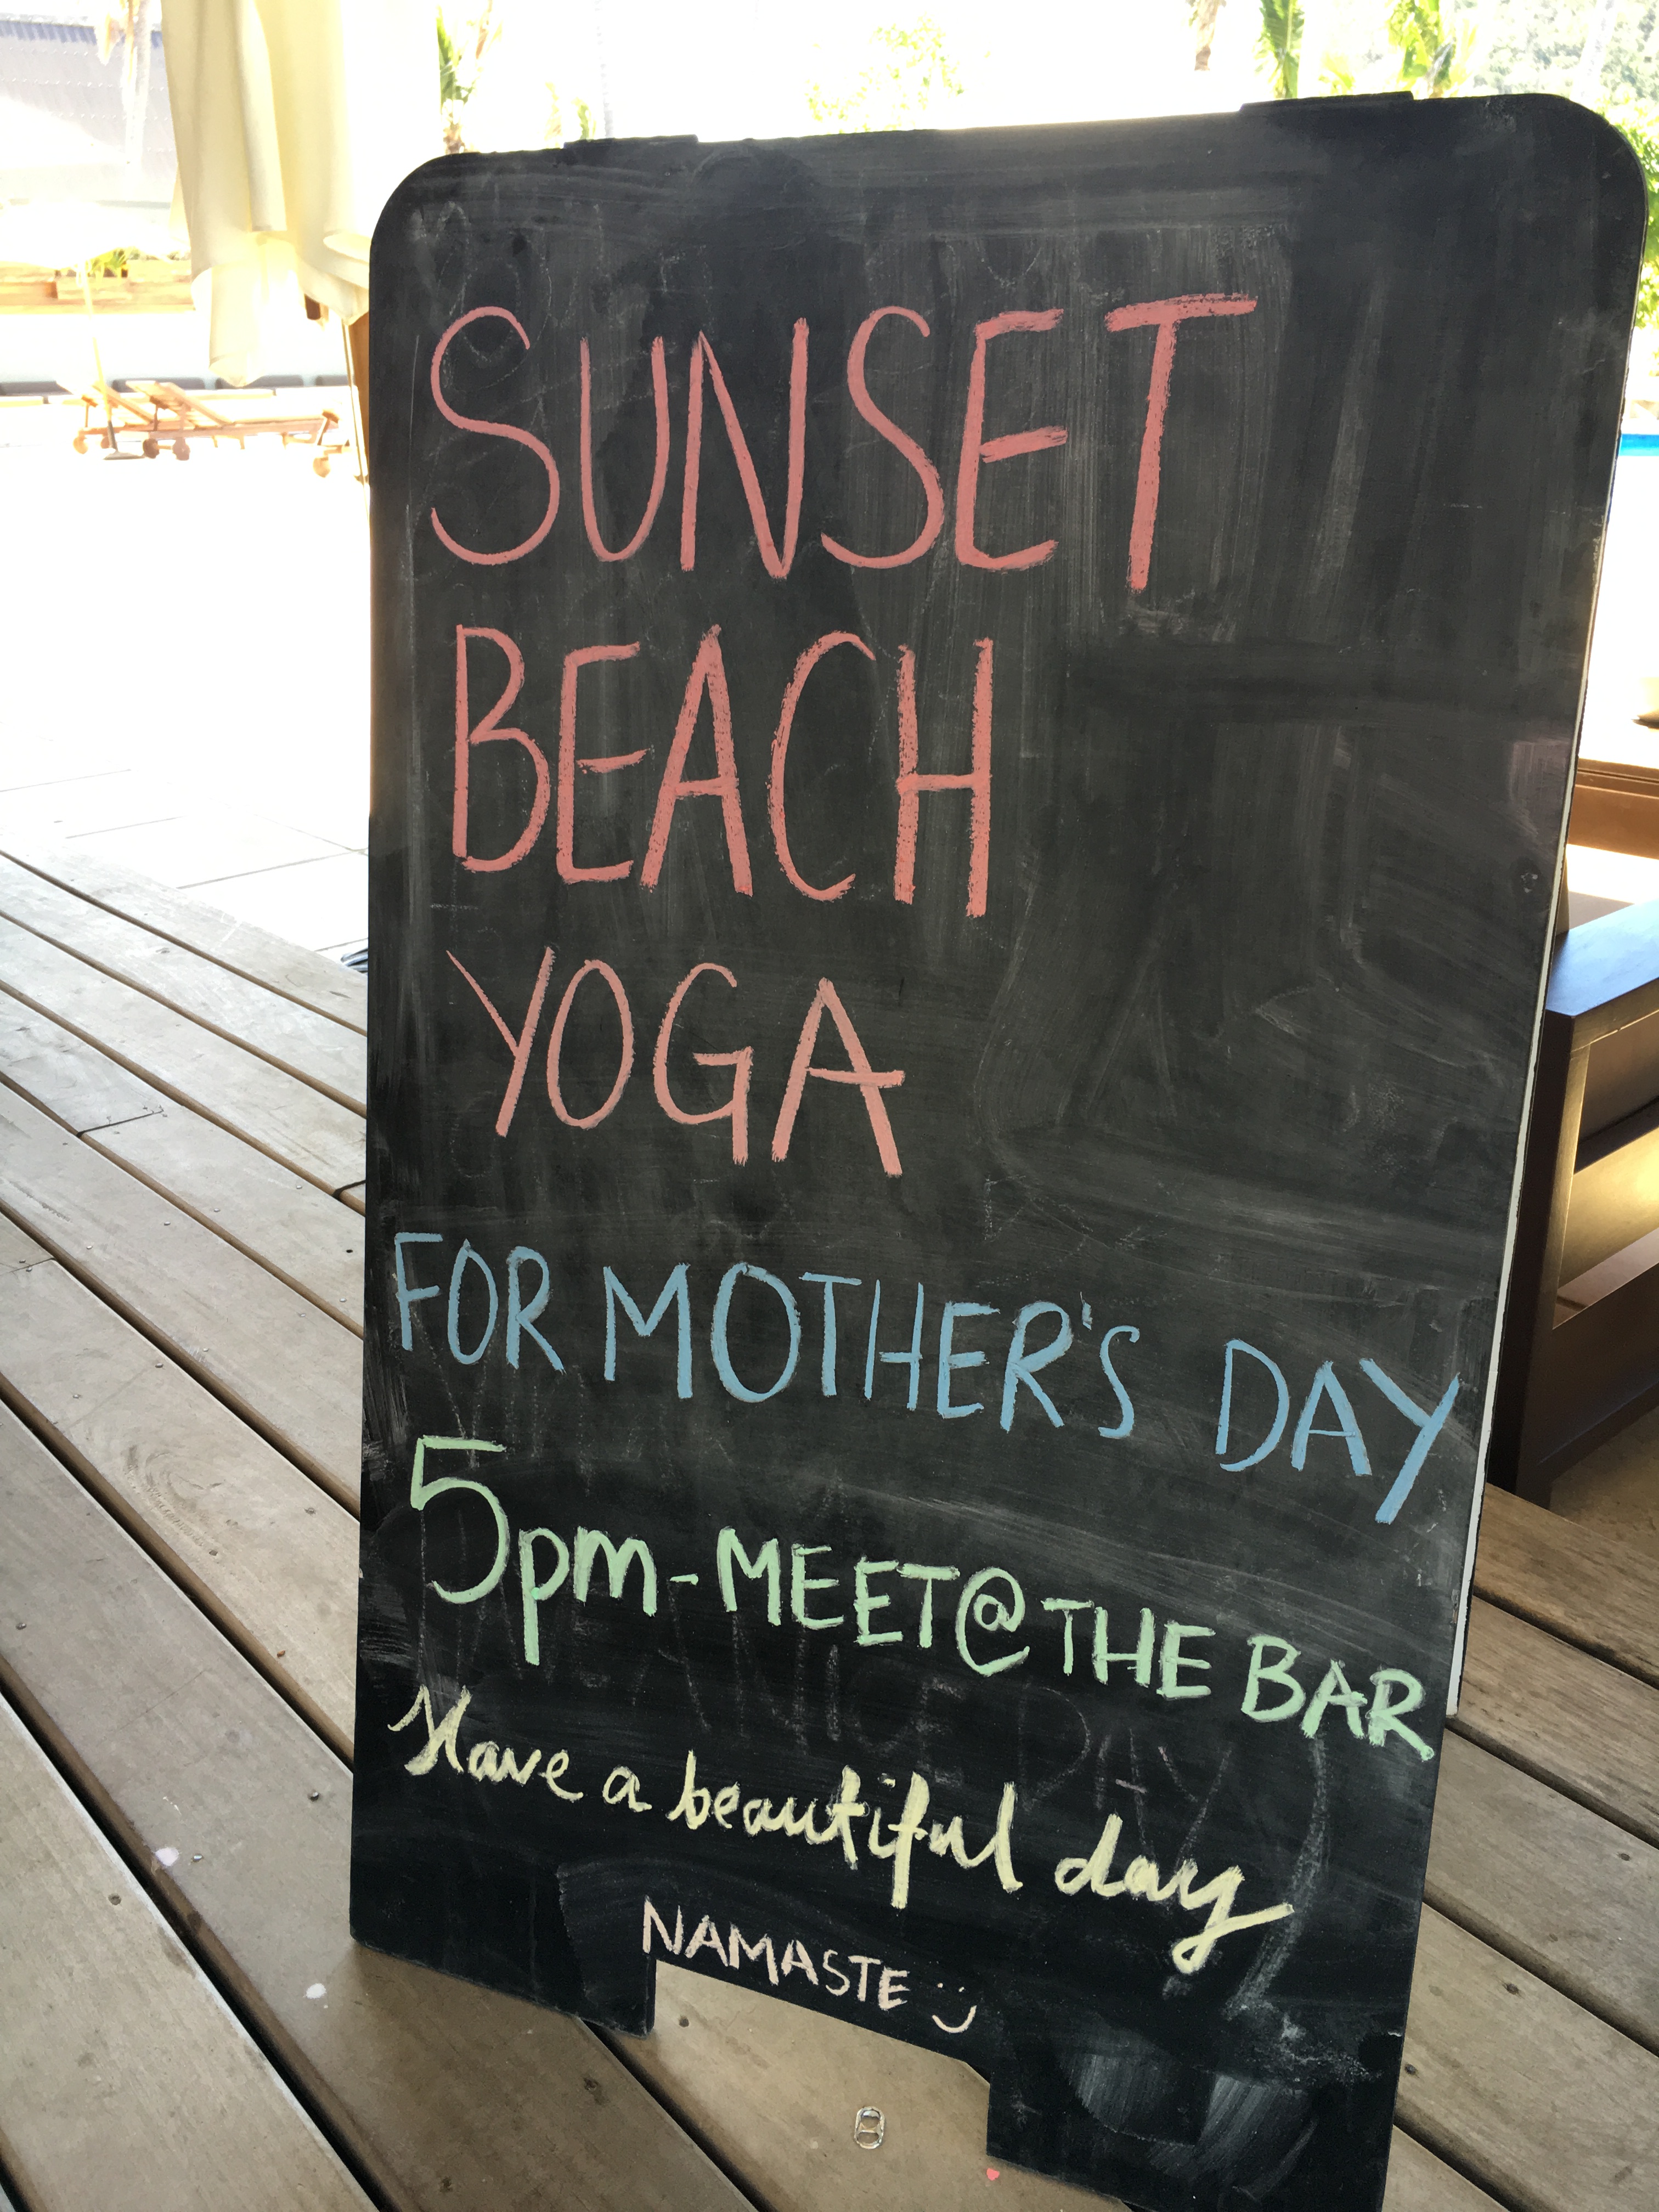 SUNSET
BEACH
YOGA
FOR MOTHER'S DAY
5pm - MEET @ THE BAR
Have a beautiful day
NAMASTE :)